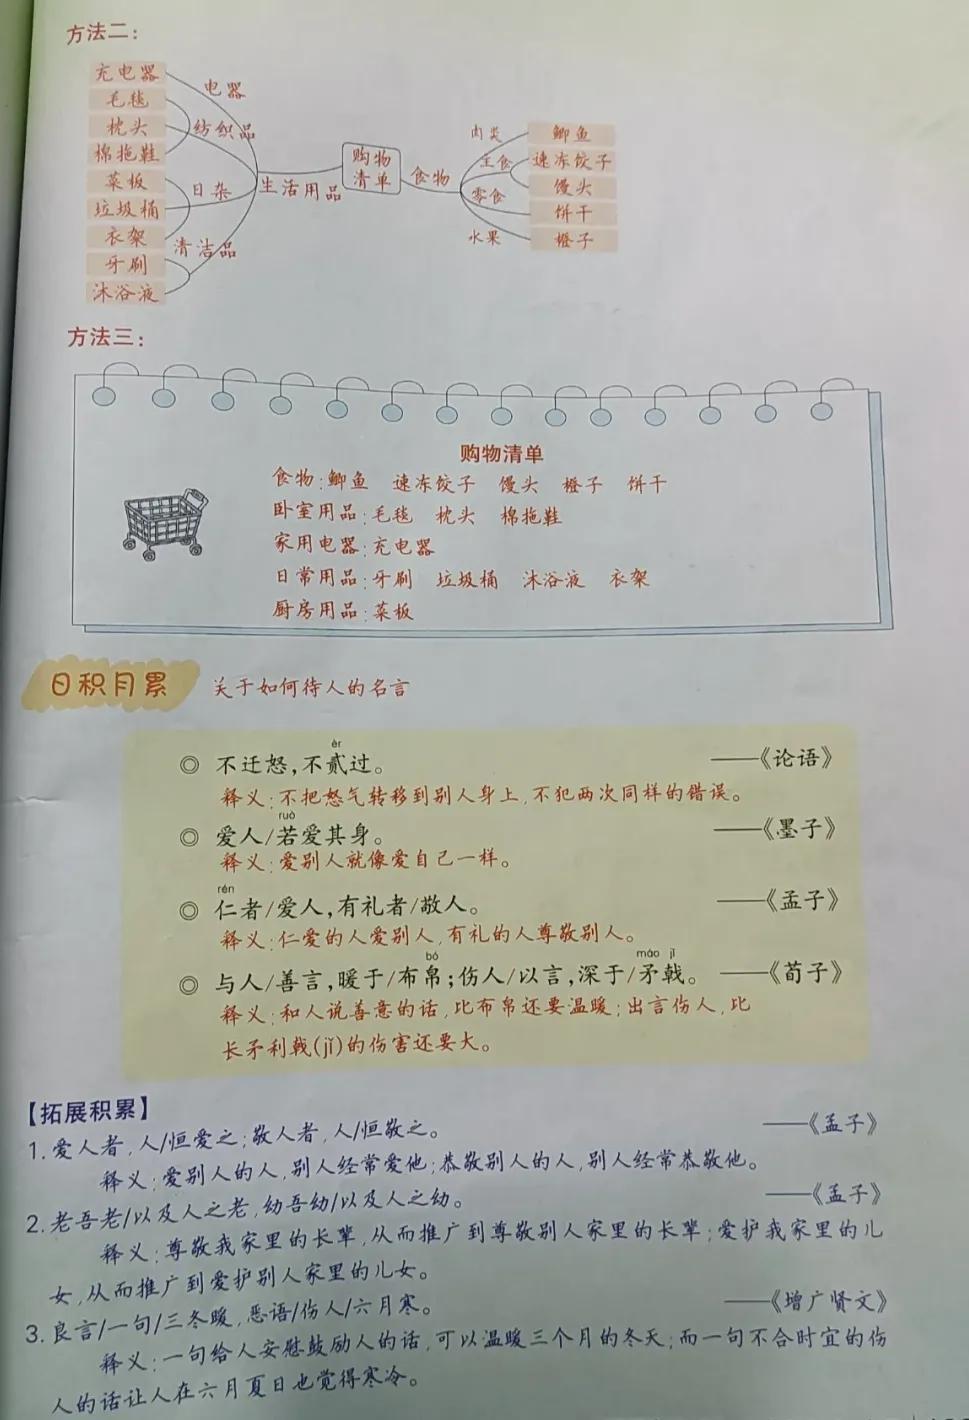 方法二：
充电器
毛毯
枕头
棉拖鞋
菜板
垃圾桶
衣架
牙刷
沐浴液
电器
纺织品
日杂
清洁品
生活用品
购物
清单
食物
肉类
主食
零食
水果
鲫鱼
速冻饺子
馒头
饼干
橙子
方法三：
购物清单
食物：鲫鱼 速冻饺子 馒头 橙子 饼干
卧室用品：毛毯 枕头 棉拖鞋
家用电器：充电器
日常用品：牙刷 垃圾桶 沐浴液 衣架
厨房用品：菜板
日积月累 关于如何待人的名言
èr
◎ 不迁怒，不贰过。 ——《论语》
释义：不把怒气转移到别人身上，不犯两次同样的错误。
ruò
◎ 爱人/若爱其身。 ——《墨子》
释义：爱别人就像爱自己一样。
rén
◎ 仁者/爱人，有礼者/敬人。 ——《孟子》
释义：仁爱的人爱别人，有礼的人尊敬别人。
bó máo jǐ
◎ 与人/善言，暖于/布帛；伤人/以言，深于/矛戟。 ——《荀子》
释义：和人说善意的话，比布帛还要温暖；出言伤人，比
长矛利戟(jǐ)的伤害还要大。
【拓展积累】
1.爱人者，人/恒爱之；敬人者，人/恒敬之。 ——《孟子》
释义：爱别人的人，别人经常爱他；恭敬别人的人，别人经常恭敬他。
2.老吾老/以及人之老，幼吾幼/以及人之幼。 ——《孟子》
释义：尊敬我家里的长辈，从而推广到尊敬别人家里的长辈；爱护我家里的儿
女，从而推广到爱护别人家里的儿女。
3.良言/一句/三冬暖，恶语/伤人/六月寒。 ——《增广贤文》
释义：一句给人安慰鼓励人的话，可以温暖三个月的冬天；而一句不合时宜的伤
人的话让人在六月夏日也觉得寒冷。